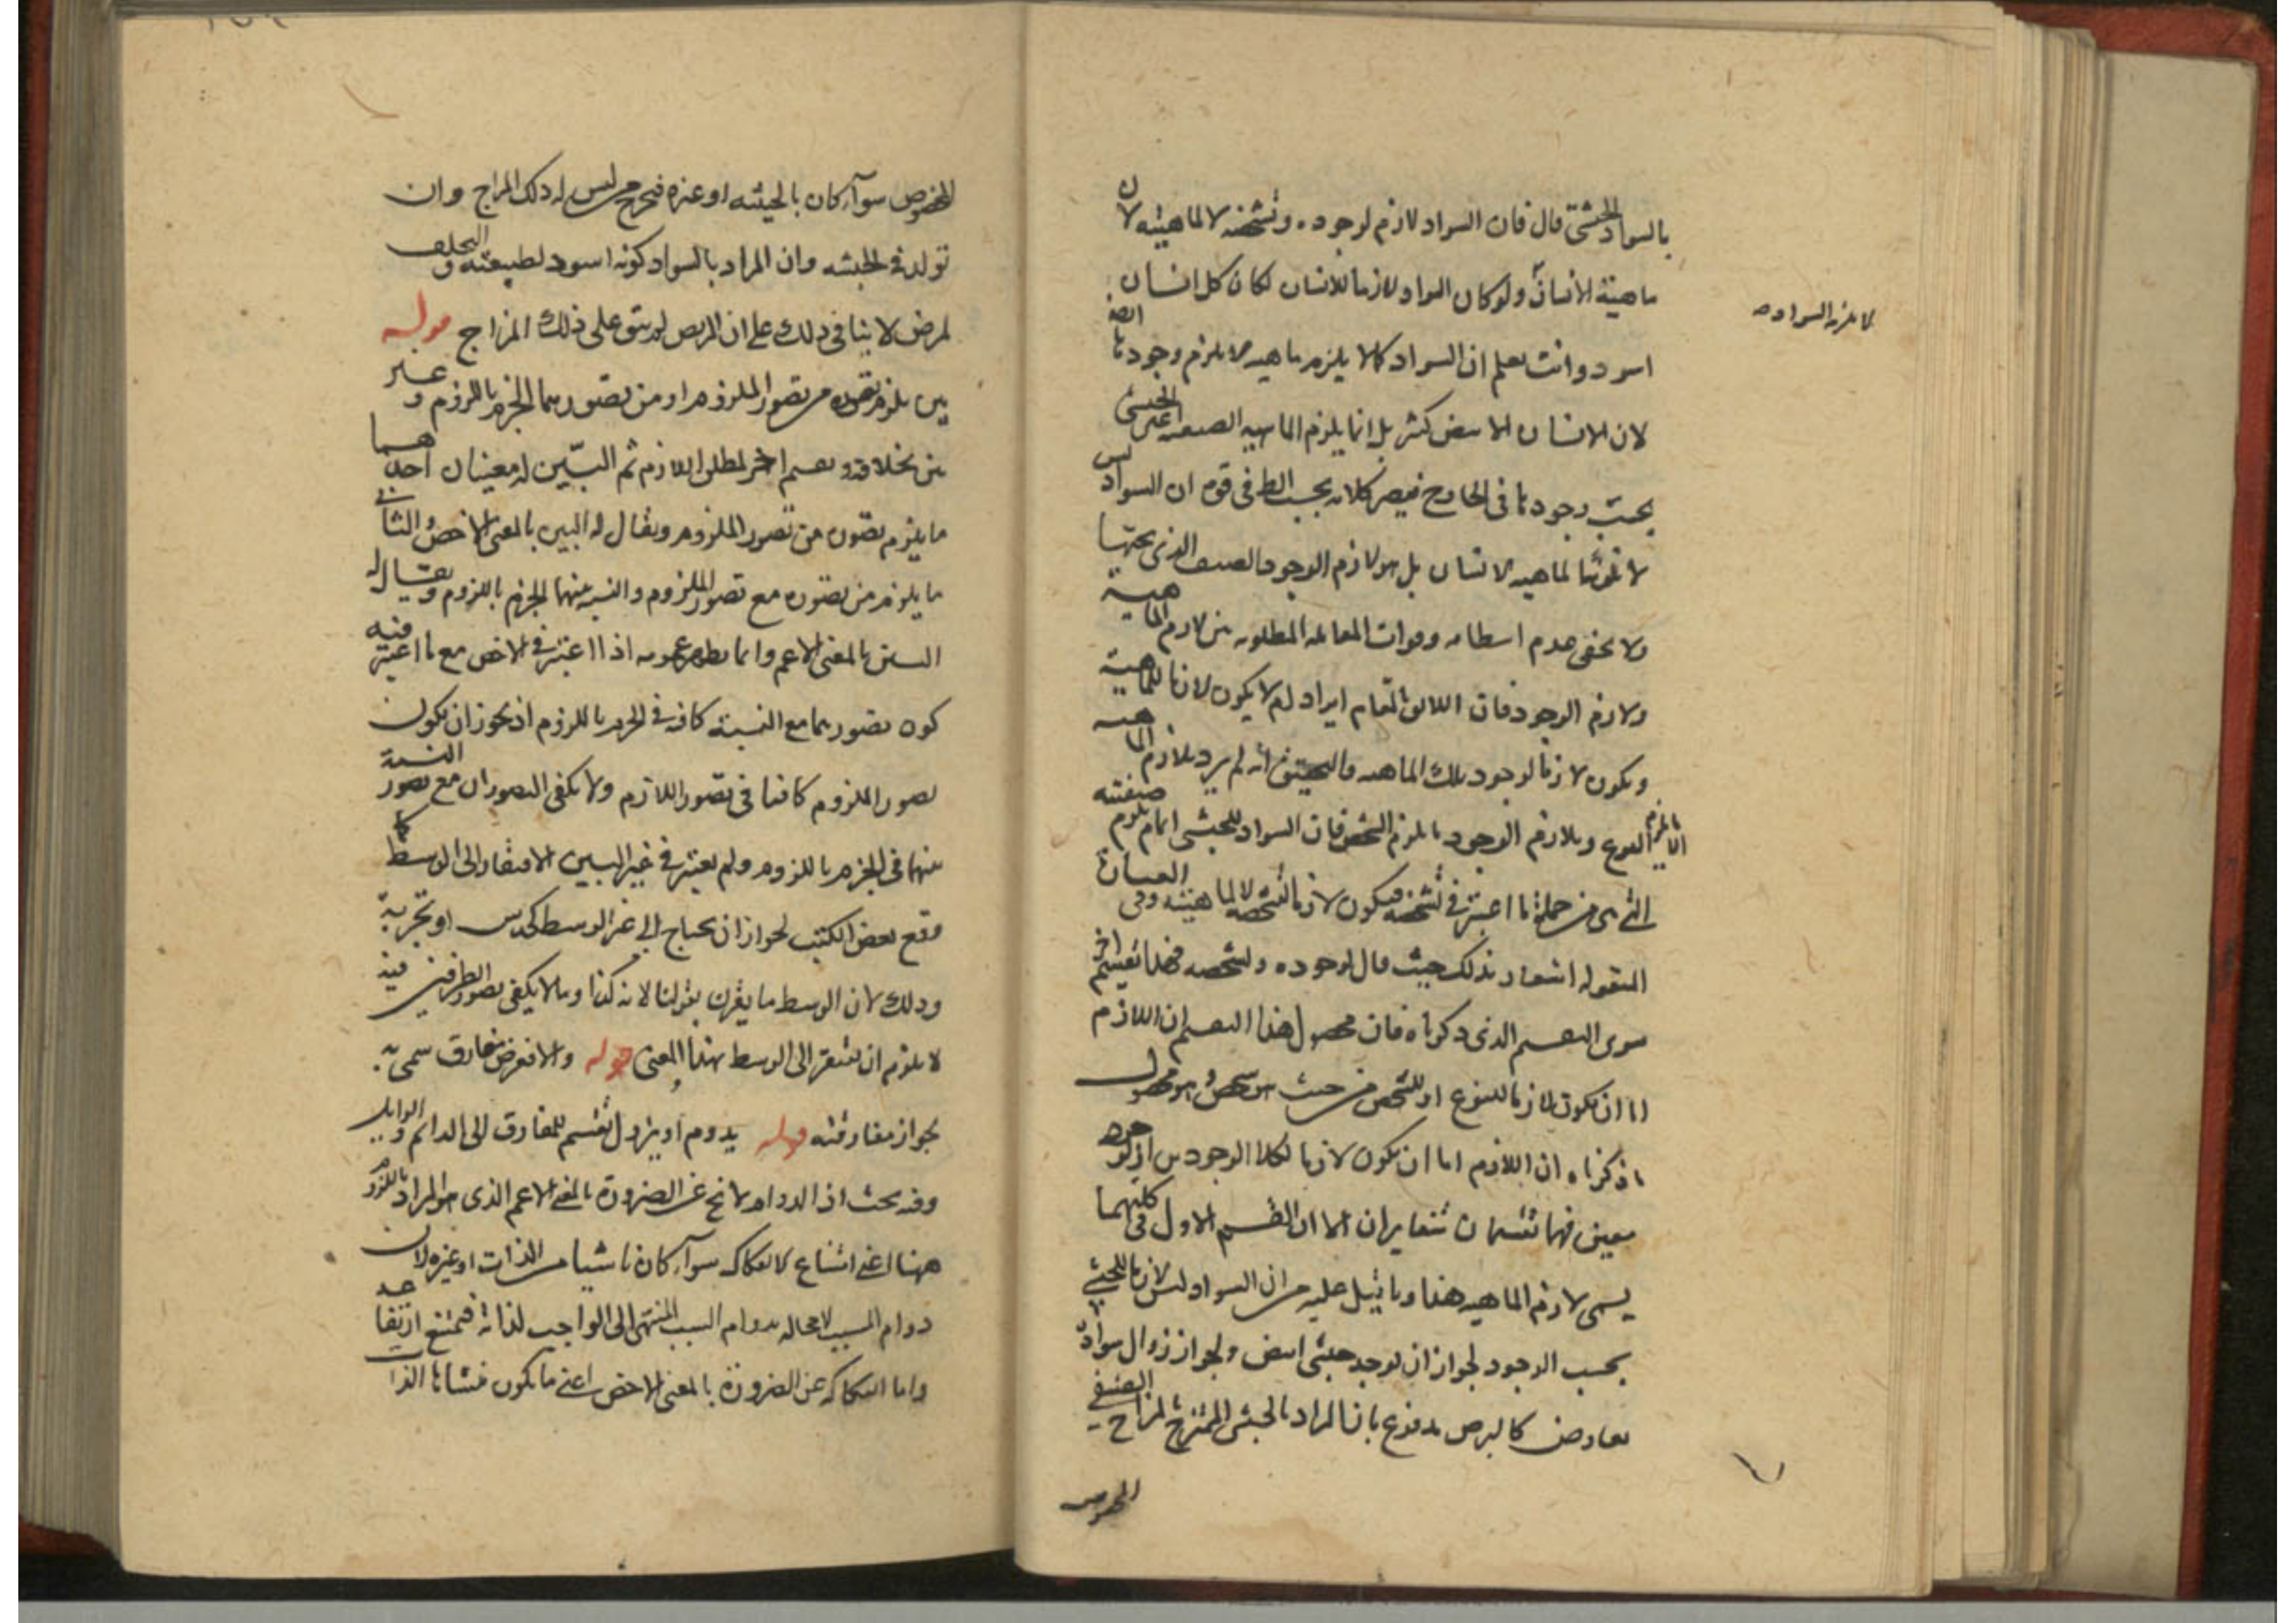 بالسواد للحبشي قال فان السواد لازم لوجوده وتشخصه لا لماهيته لان
ماهيته الانسان ولو كان السواد لازما للانسان لكان كل انسان
اسود وانت تعلم ان السواد كما لا يلزم ماهيه لا يلزم وجودها ايضا
لان الانسان الابيض كثير بل انما يلزم الماهيه الصنفيه اعني الحبشي
بحسب وجودها في الخارج فيصير كلامه بحسب الظ في قوم ان السواد ليس
لازما لماهيه الانسان بل هو لازم لوجود الصنف الذي تحتها
ولا يخفى عدم انتظامه وفوات المقابله المطلوبه بين لازم الماهية
ولازم الوجود فان اللائق بالمقام ايراد لم لا يكون لازما للماهية
ويكون لازما لوجود تلك الماهيه والتحقيق انه لم يرد بلازم الماهيه
الا ما يلزم النوع وبلازم الوجود ما يلزم الشخص فان السواد للحبشي انما يلزم صنفيته
التي هي من جملة ما اعتبر في تشخصه فيكون لازما لتشخصه لا لماهيته وفي العبارة
المنقوله اشعار بذلك حيث قال لوجوده وتشخصه فهذا تقسيم اخر
سوى التقسيم الذي ذكرناه فان محصول هذا التقسيم ان اللازم
اما ان يكون لازما للنوع او للشخص من حيث هو شخص ومحصول
ما ذكرناه ان اللازم اما ان يكون لازما لكلا الوجودين او لوجود
معين فهما تقسيمان متغايران الا ان القسم الاول في كليهما
يسمى لازم الماهيه هذا وما قيل عليه من ان السواد ليس لازما للحبشي
بحسب الوجود لجواز ان يوجد حبشي ابيض ولجواز زوال سواده
بعارض كالبرص مدفوع بان المراد بالحبشي الممتزج بالمزاج الصنفي
المخصوص
لا يلزمه السواد
المخصوص سواء كان بالحبشه او غيره فيخرج من ليس له ذلك المزاج وان
تولد في الحبشه وان المراد بالسواد كونه اسود لطبيعته والتخلف
لمرض لا ينافي ذلك على ان الابرص لم يبق على ذلك المزاج قوله
بين يلزم تصوره من تصور الملزوم او من تصورهما الجزم باللزوم وغير
بين بخلافه وتقسيم اخر لمطلق اللازم ثم البيّن له معينان احدهما
ما يلزم تصوره من تصور الملزوم ويقال له البين بالمعنى الاخص والثاني
ما يلزم من تصوره مع تصور الملزوم والنسبه بينهما الجزم باللزوم ويقال له
البين بالمعنى الاعم وانما يظهر عمومه اذا اعتبر في الاخص مع ما اعتبر فيه
كون تصورهما مع النسبة كافيه في الجزم باللزوم اذ يجوز ان يكون
تصور الملزوم كافيا في تصور اللازم ولا يكفي التصوران مع تصور النسبة
بينهما في الجزم باللزوم ولم يعتبر في غير البين الافتقار الى الوسط كما
وقع بعض الكتب لجواز ان يحتاج الى غير الوسط كحدس او تجربة
وذلك لان الوسط ما يقرن بقولنا لانه كذا وما لا يكفي تصور الطرفين فيه
لا يلزم ان يفتقر الى الوسط بهذا المعنى قوله والا فعرض مفارق سمي به
لجواز مفارقته قوله يدوم او يزول تقسيم للمفارق الى الدائم والزايل
وفيه بحث اذ الدوام لا يخ عن الضرورة بالمعنى الاعم الذي هو المراد باللزوم
ههنا اعني امتناع الانفكاك سواء كان ناشيا من الذات او غيره لان
دوام المسبب لا محاله بدوام السبب المنتهي الى الواجب لذاته فيمتنع ارتفاعه
واما انفكاكه عن الضرورة بالمعنى الاخص اعني ما يكون منشاها الذات